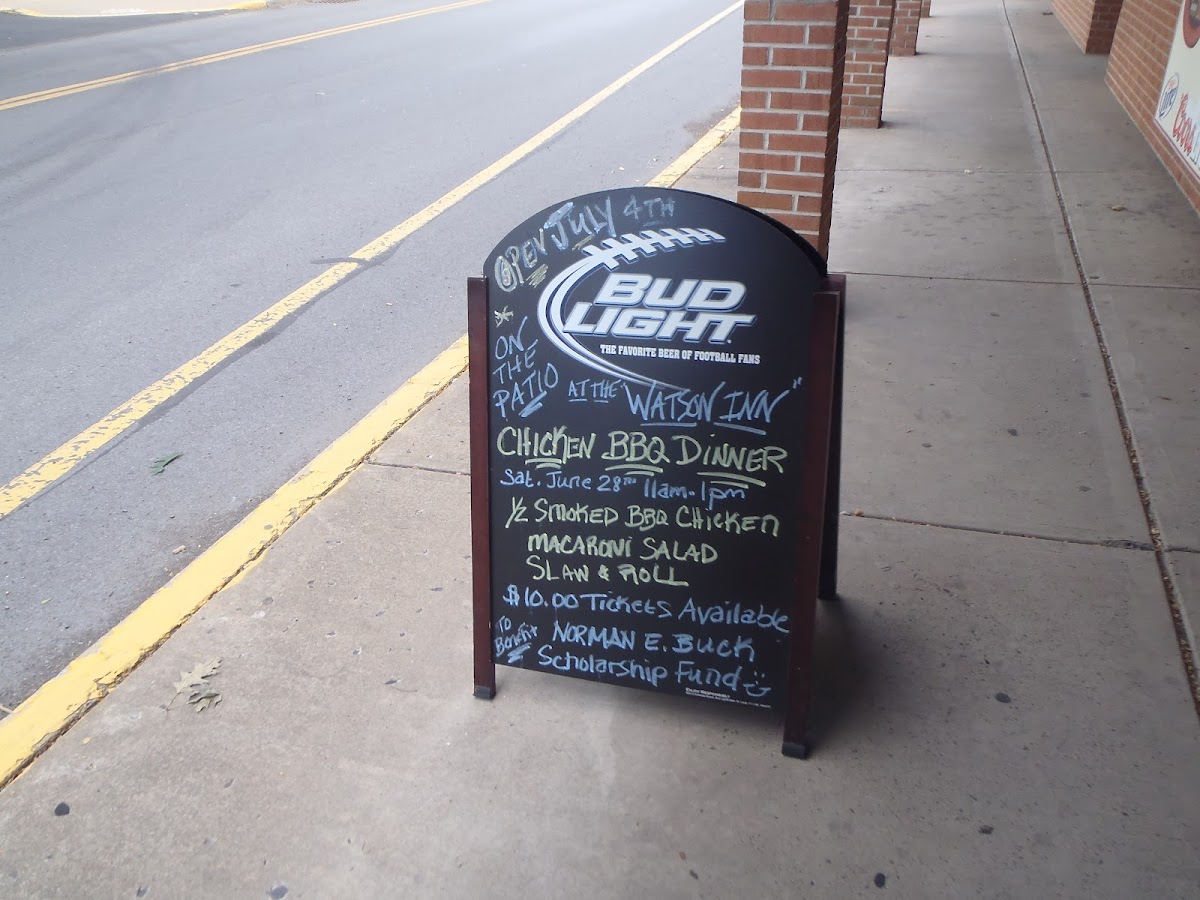 OPEN JULY 4TH
BUD
LIGHT
THE FAVORITE BEER OF FOOTBALL FANS
ON
THE
PATIO
AT THE "WATSON INN"
CHICKEN BBQ DINNER
Sat. June 28TH 11am-1pm
1/2 SMOKED BBQ CHICKEN
MACARONI SALAD
SLAW & ROLL
$10.00 Tickets Available
To Benefit
NORMAN E. BUCK
Scholarship Fund
ENJOY RESPONSIBLY
Lite
Coors